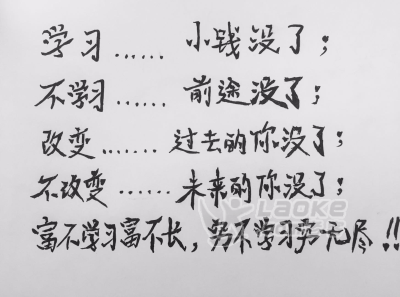 学习……小钱没了;
不学习……前途没了;
改变……过去的你没了;
不改变……未来的你没了;
富不学习富不长,穷不学习穷无尽!!
LAOKE